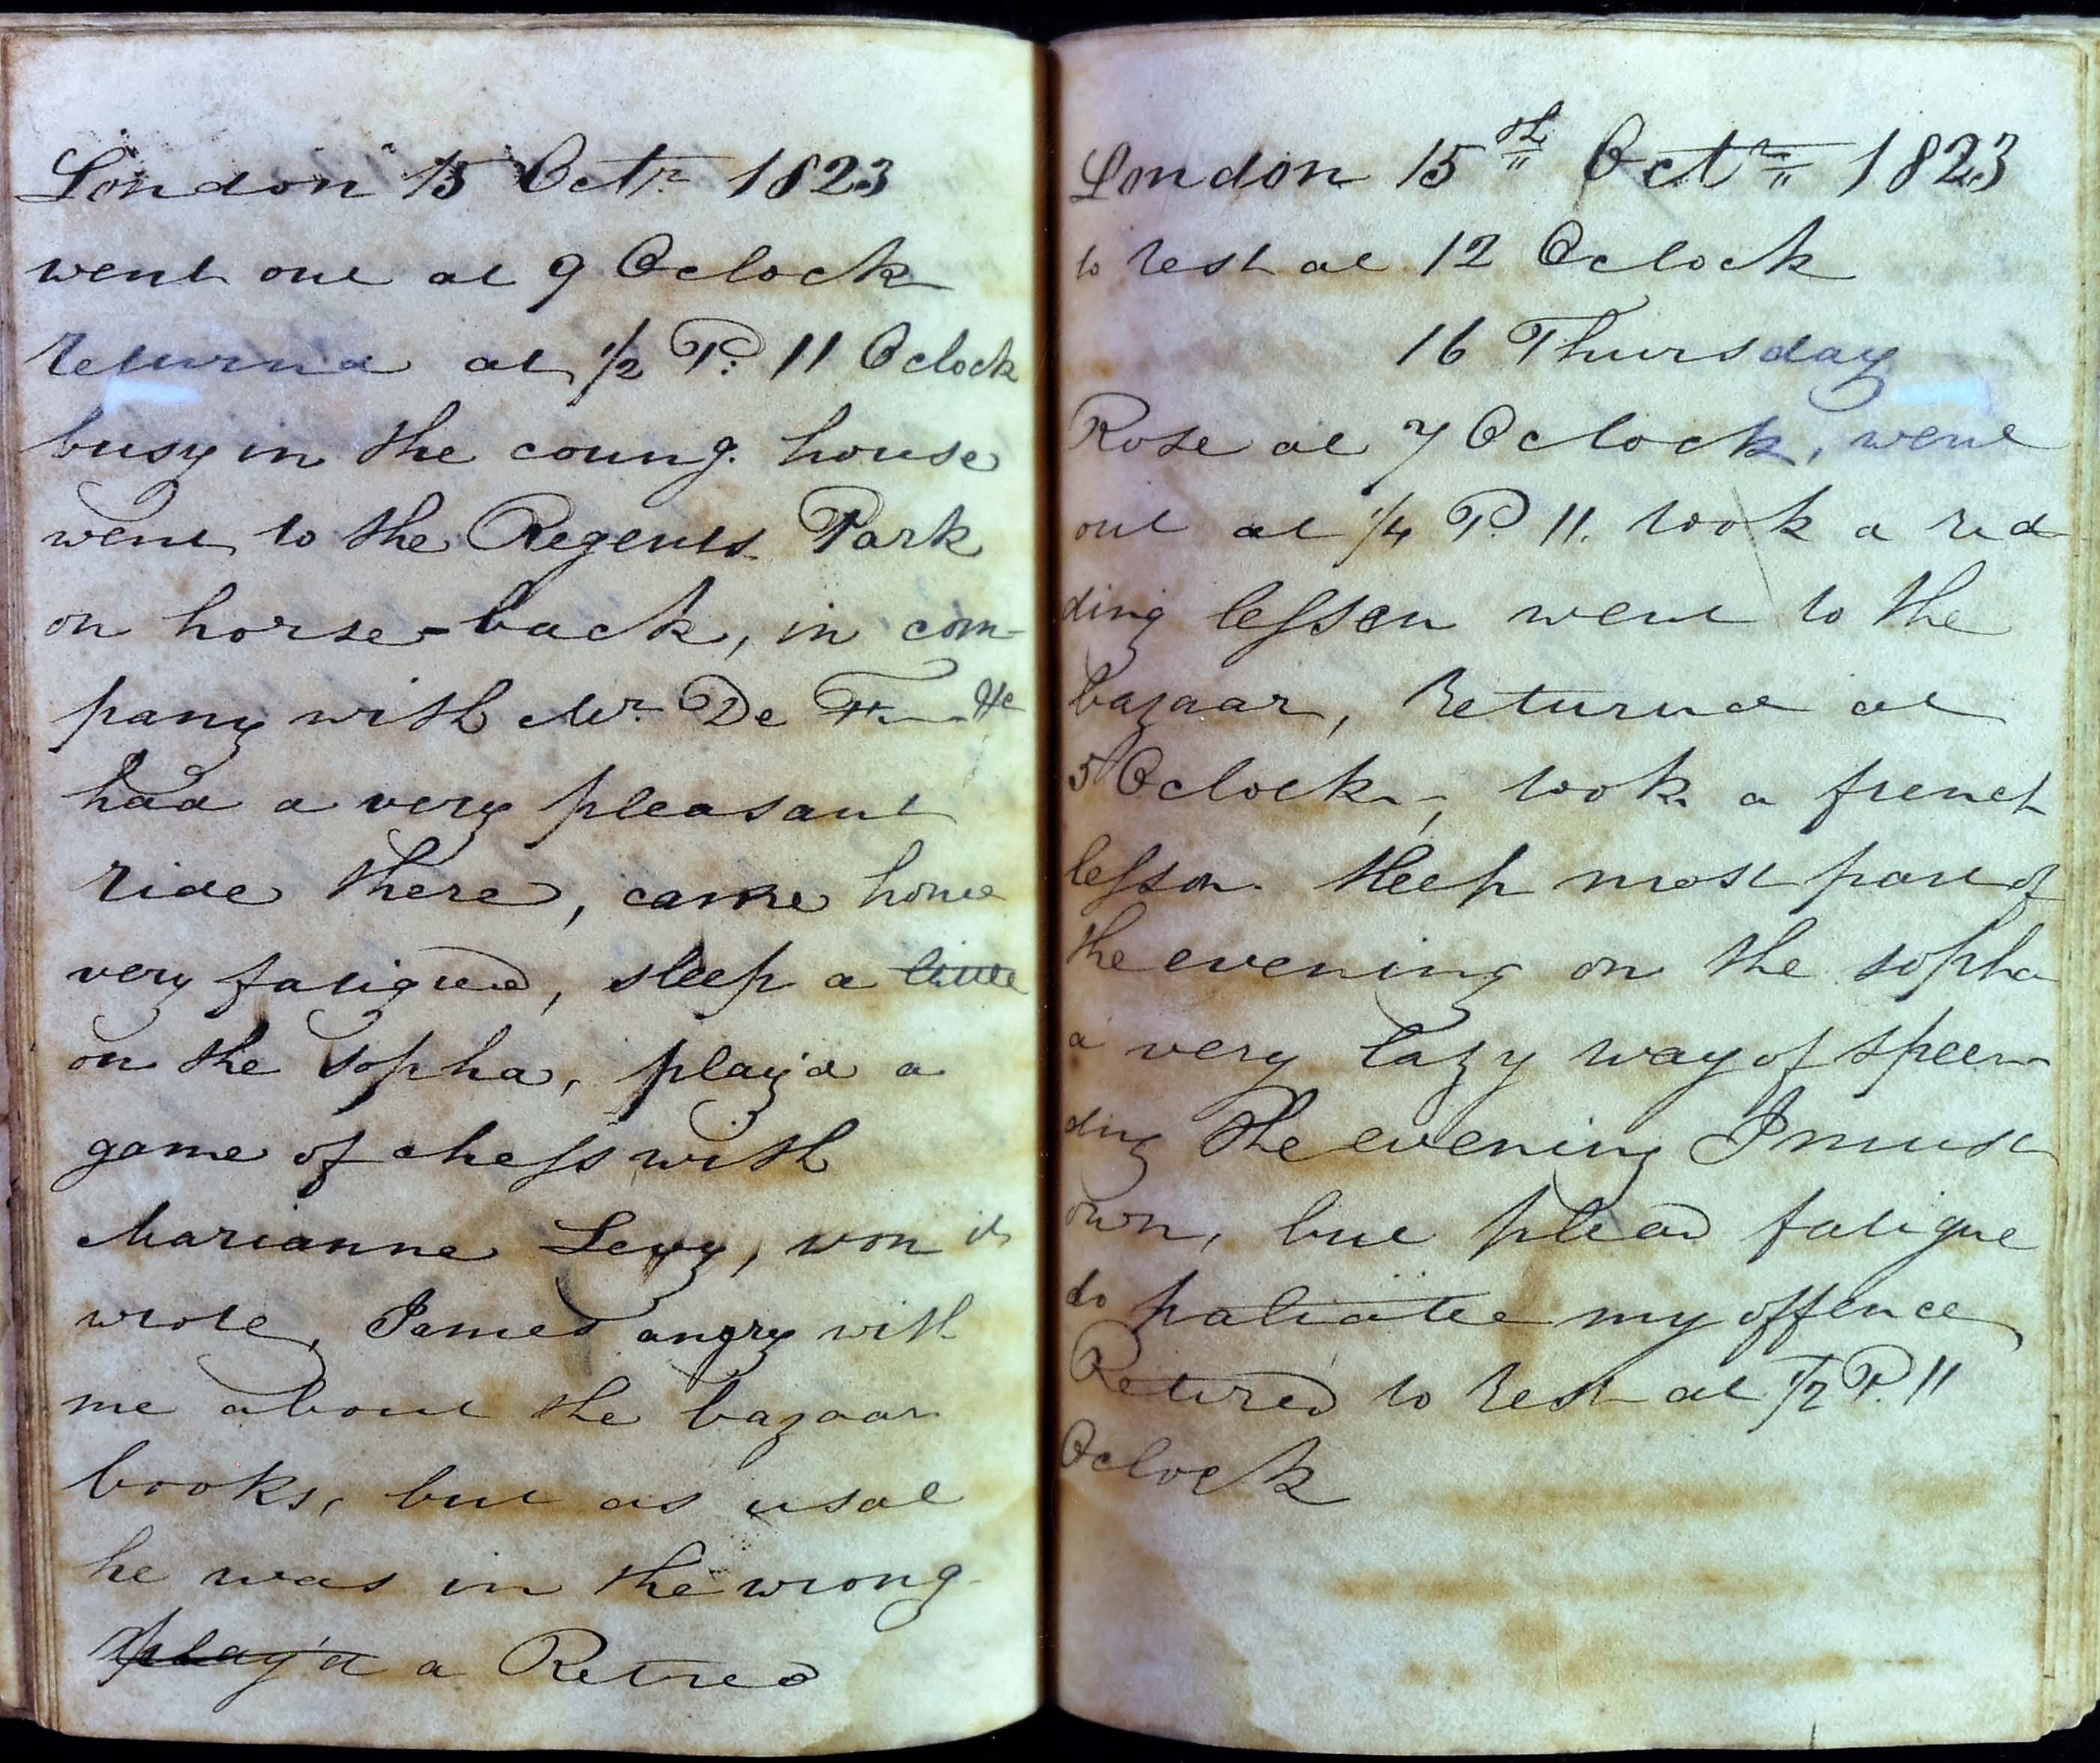 London 15 Octr. 1823
went out at 9 Oclock
returnd at 1/2 P. 11 Oclock
busy in the coung. house
went to the Regents Park
on horse-back, in com-
pany with Mr. De
had a very pleasant
ride there, came home
very fatigued, sleep a little
on the sopha, play'd a
game of chess with
Marianne Levy, won it
wrote, James angry with
me about the bazaar
books, but as usal
he was in the wrong
play'd a Retired
London 15th Octr. 1823
to rest at 12 Oclock
16 Thursday
Rose at 7 Oclock, went
out at 1/4 P. 11. took a rid
ding lesson went to the
bazaar, Returnd at
5 Oclock, took a french
lesson. sleep most part of
the evening on the sopha
a very lazy way of speen
ding the evening I must
own, but plead fatigue
to paliatee my offence,
Retired to rest at 1/2 P. 11
Oclock